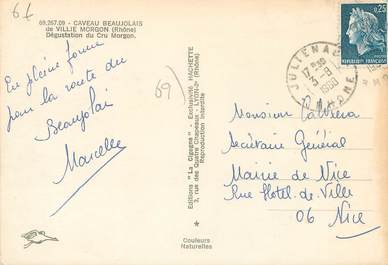 61
69.267.09 - CAVEAU BEAUJOLAIS
de VILLIE MORGON (Rhône)
Dégustation du Cru Morgon.
En pleine forme
pour la route du
Beaujolai
Marcelle
69
Editions "La Cigogne" - Exclusivité HACHETTE
3, rue des Quatre Chapeaux - LYON-2e (Rhône)
Reproduction interdite
Couleurs
Naturelles
0,25
REPUBLIQUE FRANCAISE
JULIENAS
RHONE
Monsieur
Secrétaire Général
Mairie de Nice
Rue Hotel de Ville
06 Nice